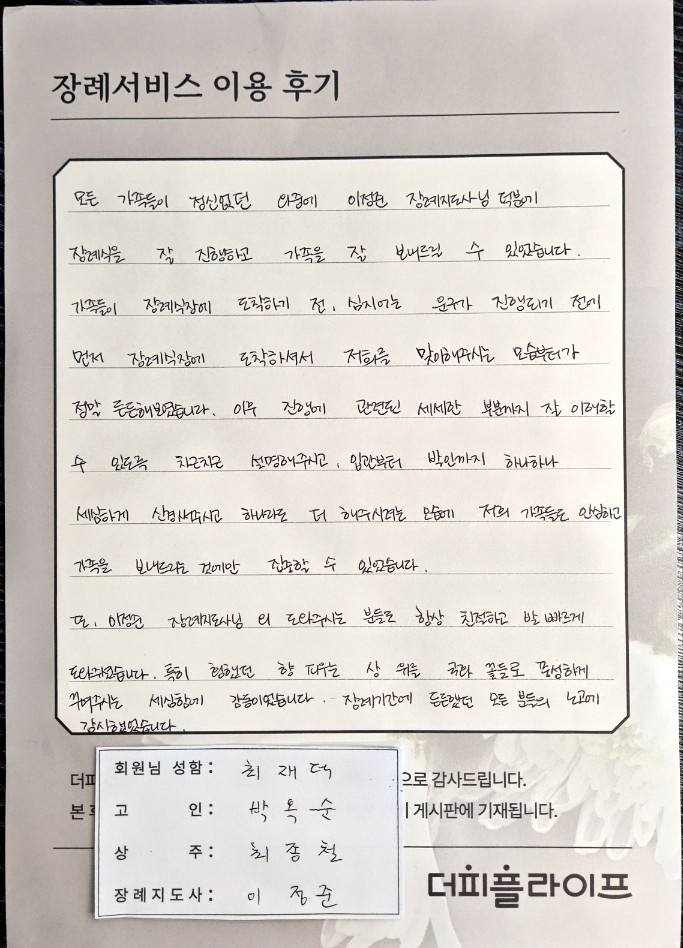 장례서비스 이용 후기
모든 가족들이 정신없던 와중에 이정준 장례지도사님 덕분에
장례식을 잘 진행하고 가족을 잘 보내드릴 수 있었습니다.
가족들이 장례식장에 도착하기 전, 심지어는 운구가 진행되기 전에
먼저 장례식장에 도착하셔서 저희를 맞이해주시는 모습부터가
정말 든든해보였습니다. 이후 진행에 관련된 세세한 부분까지 잘 이해할
수 있도록 차근차근 설명해주시고, 입관부터 발인까지 하나하나
세심하게 신경써주시고 하나라도 더 해주시려는 모습에 저희 가족들도 안심하고
가족을 보내드리는 것에만 집중할 수 있었습니다.
또, 이정준 장례지도사님 외 도와주시는 분들도 항상 친절하고 발 빠르게
도와주셨습니다. 특히 휑했던 향 피우는 상 위를 국화 꽃들로 풍성하게
꾸며주시는 세심함에 감동이었습니다. 장례기간에 든든했던 모든 분들의 노고에
감사했었습니다.
더피 으로 감사드립니다.
본 게시판에 기재됩니다.
회원님 성함: 최재덕
고 인: 박옥순
상 주: 최종철
장례지도사: 이정준
더피플라이프